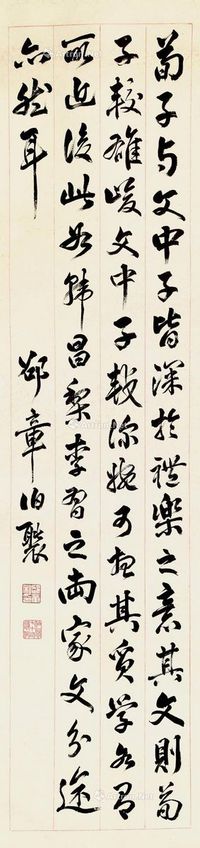 荀子与文中子皆深於禮樂之意其文則荀
子較雄峻文中子較深婉可想其質學各有
所近後此如韓昌黎李習之兩家文分途
亦然耳
章伯